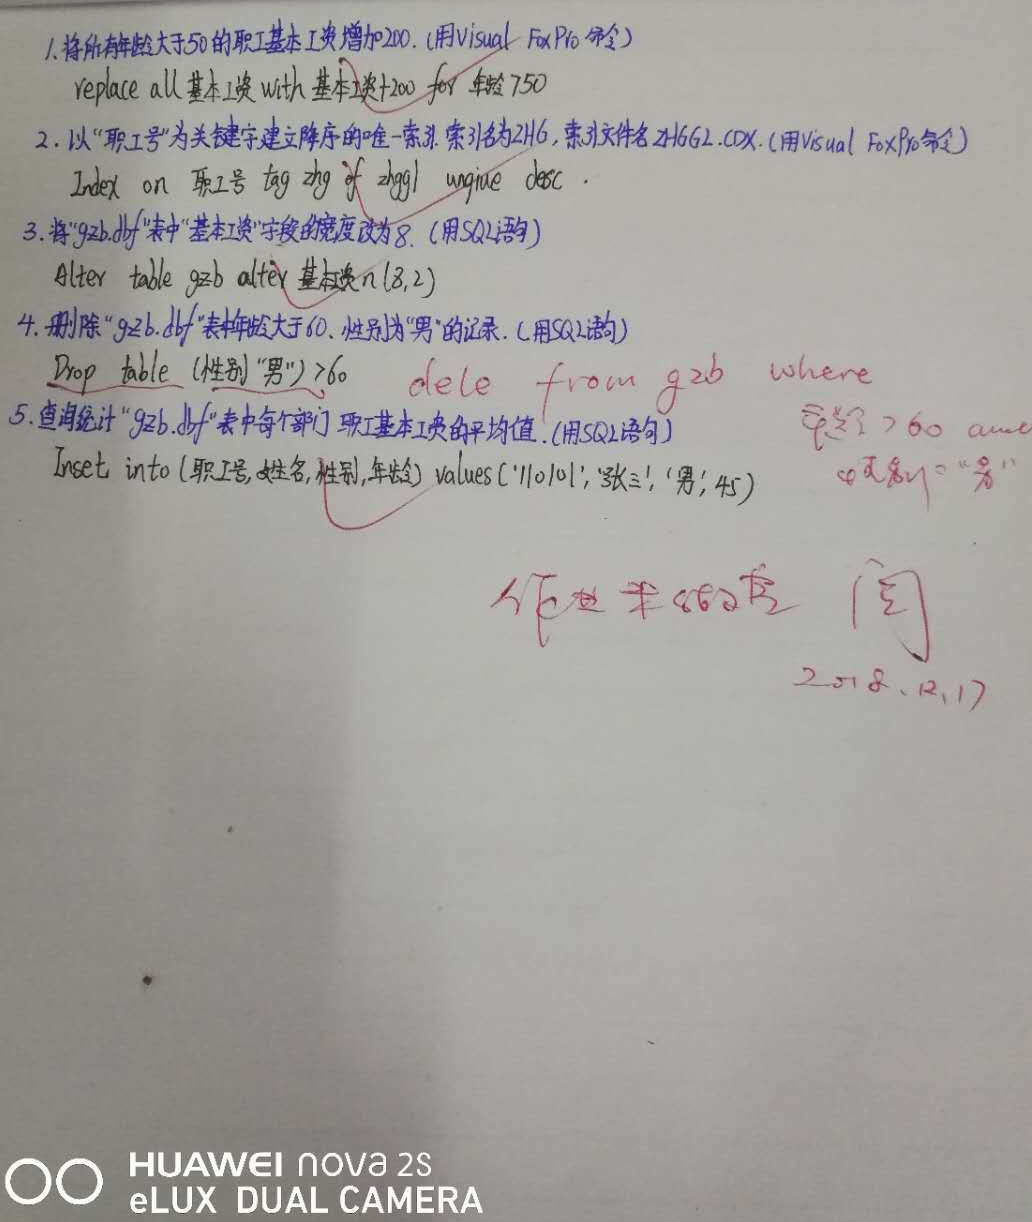 1.将所有年龄大于50的职工基本工资增加200.(用Visual FoxPro 命令)
replace all 基本工资 with 基本工资+200 for 年龄>50
2.以"职工号"为关键字建立降序的唯一索引.索引名为ZHG,索引文件名ZHGGL.CDX.(用Visual FoxPro命令)
Index on 职工号 tag zhg of zhggl unqiue desc.
3.将"gzb.dbf"表中"基本工资"字段的宽度改为8.(用SQL语句)
Alter table gzb alter 基本工资 n(8,2)
4.删除"gzb.dbf"表中年龄大于60.性别为"男"的记录.(用SQL语句)
Drop table (性别"男")>60
dele from gzb where
年龄>60 and
性别="男"
5.查询统计"gzb.dbf"表中每个部门职工基本工资的平均值.(用SQL语句)
Inset into (职工号,姓名,性别,年龄) values('110101','张三','男',45)
作业未
2018.12.17
HUAWEI nova 2s
eLUX DUAL CAMERA